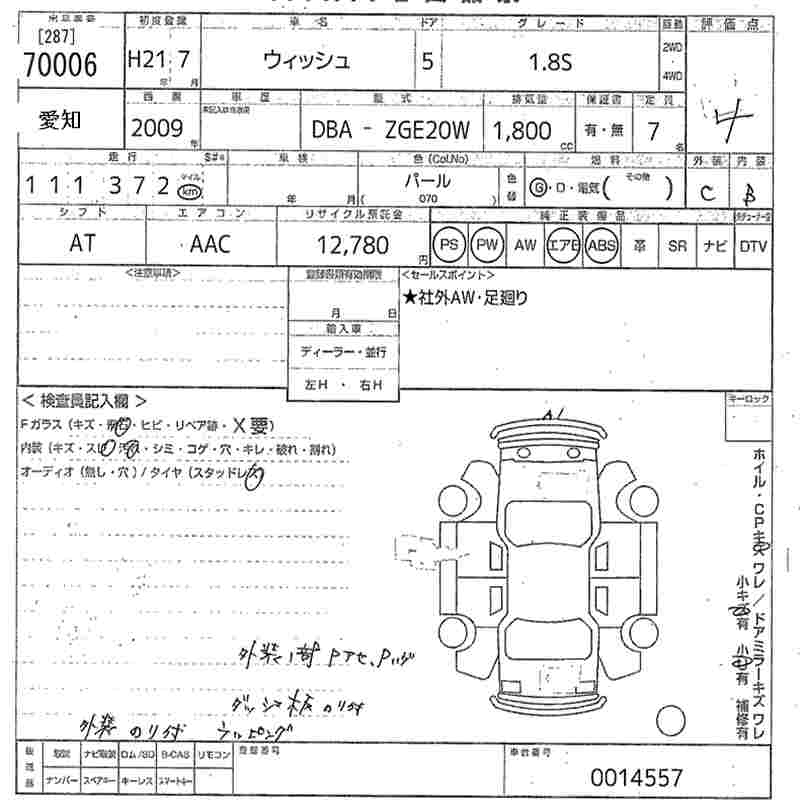 初度登録 車名 ドア グレード 駆動 評価点
[287]
70006 H21 7 ウィッシュ 5 1.8S 2WD・4WD
年 月
西暦 車歴 型式 排気量 保証書 定員
愛知 2009 DBA - ZGE20W 1,800 有・無 7 4
年 CC 名
走行 S#® 車検 色(Col.No) 燃料 外装 内装
111372 マイル km 年 月 パール 色替 G・D・電気( その他 ) C B
( 070 )
シフト エアコン リサイクル預託金 純正装備品
AT AAC 12,780 円 PS PW AW エアB ABS 革 SR ナビ DTV
<注意事項> 登録書類有効期限 <セールスポイント>
★社外AW・足廻り
月 日
輸入車
ディーラー・並行
左H・右H
<検査員記入欄> キーロック
Fガラス(キズ・飛石・ヒビ・リペア跡・X要)
A1
内装(キズ・スレ・汚れ・シミ・コゲ・穴・キレ・破れ・割れ)
オーディオ(無し・穴)/タイヤ(スタッドレス)
ホイル・CPキズ ワレ/ドアミラーキズ ワレ
小キズ有 小凹有 補修有
外装1部Pアセ、Pハゲ
ダッシュ板のり付
外装のり付 ラッピング
販売部 取説 ナビ取説 ロム/SD B-CAS リモコン 登録番号 車台番号
ナンバー スペアキー キーレス スマートキー 0014557